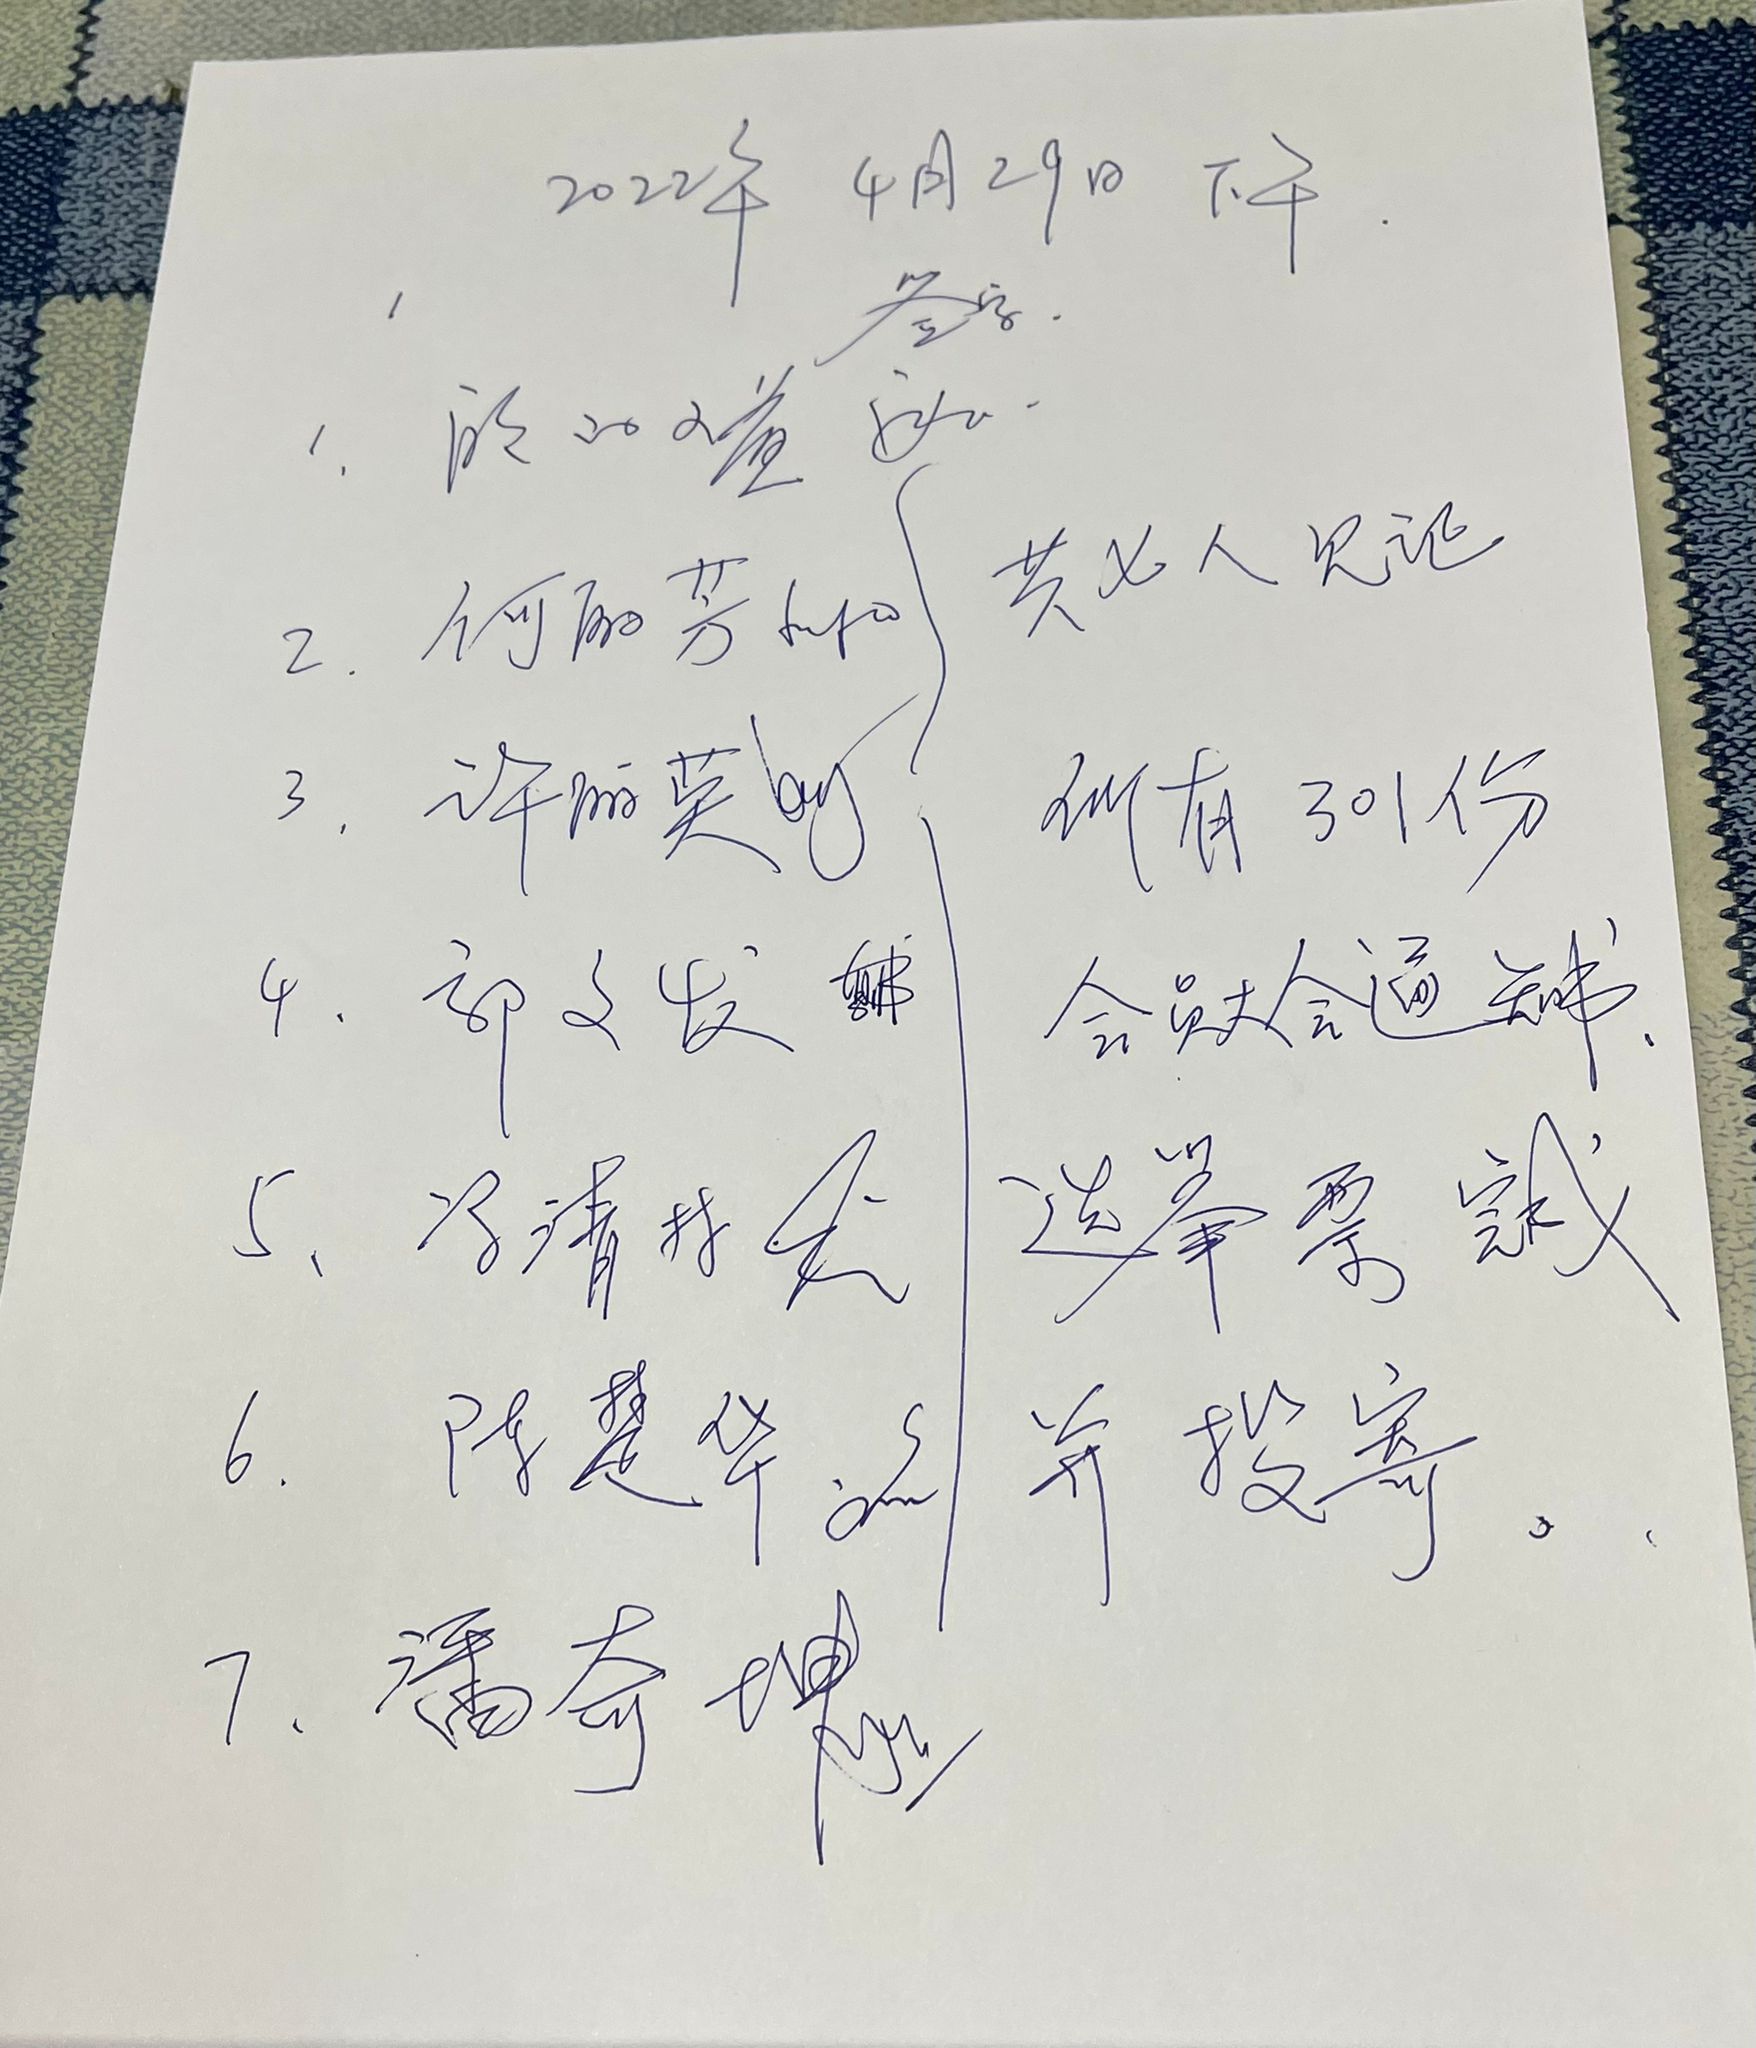 2022年 4月29日 下午.
签字.
1.
2. 何丽芳
3. 许丽英
4. 郭文发
5. 冯清
6. 陈楚华.
7. 潘奇坤
共七人见证
所有301份
会员大会通知书.
选举票 完成
并投寄。